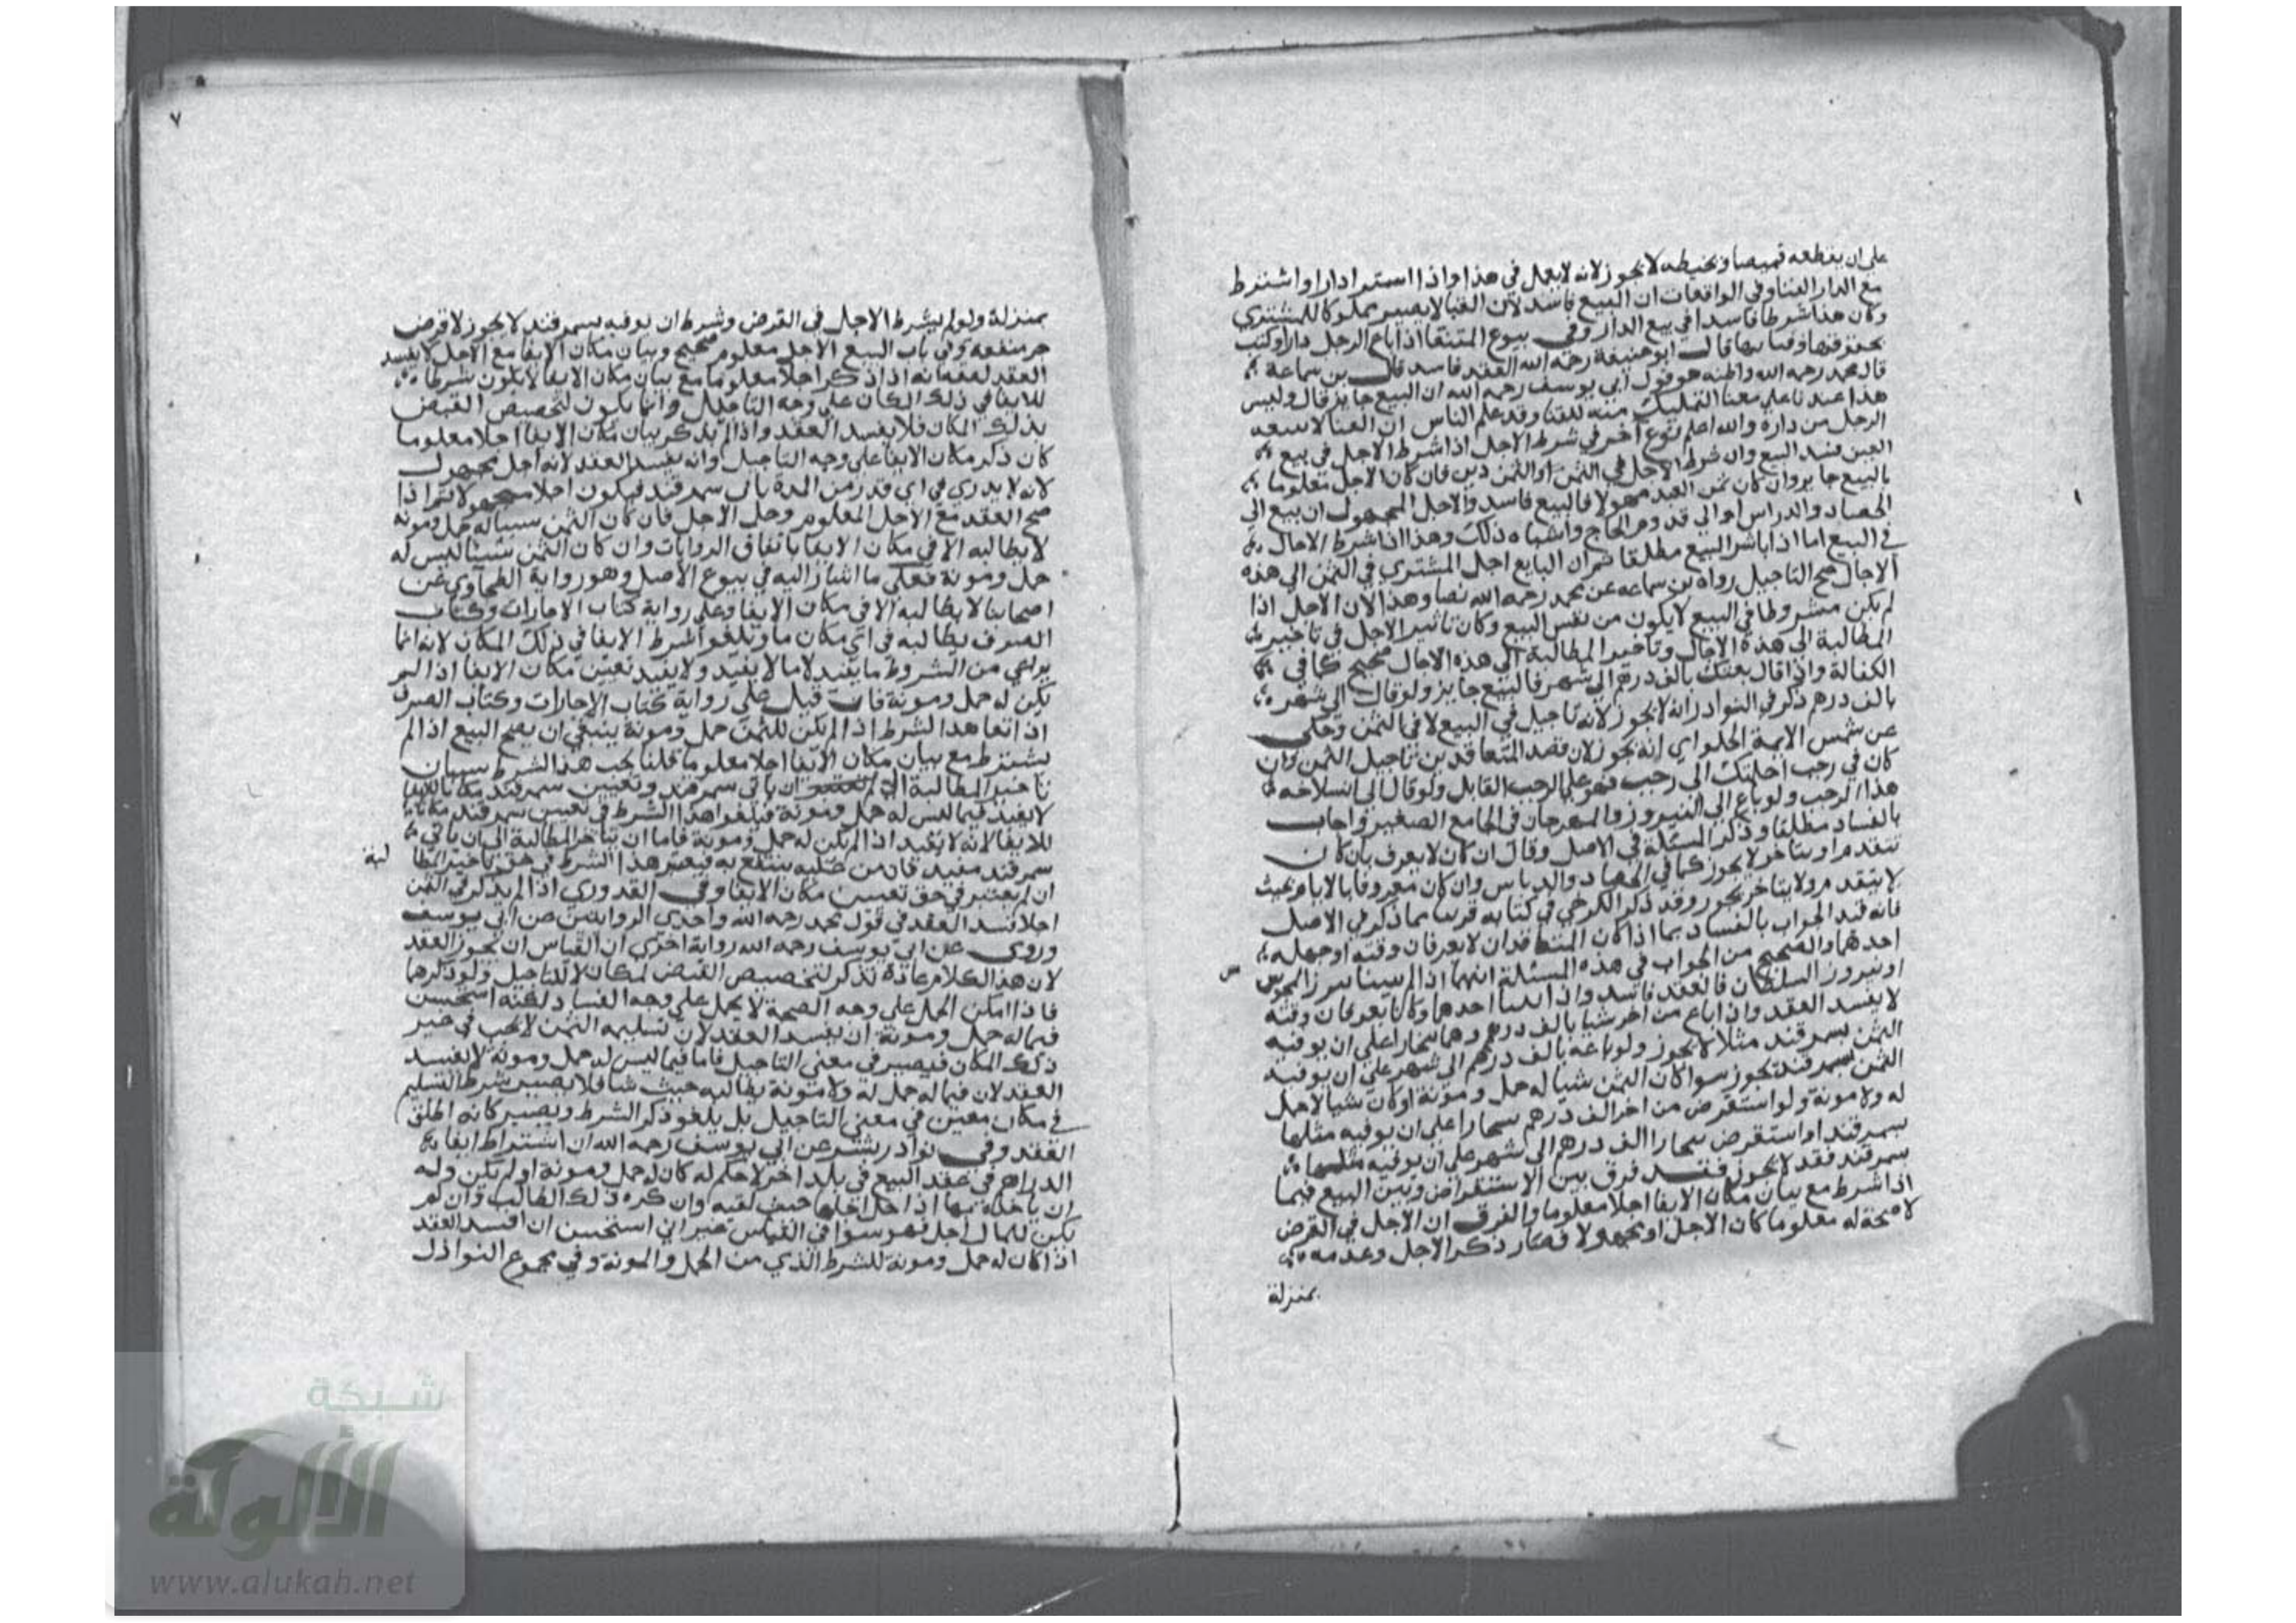 على ان يقطعه قميصا ويخيطه لا يجوز لانه لا يعمل في هذا واذا استرا دارا واشترط
مع الدار الفنا وفي الواقعات ان البيع فاسد لان الفنا لا يصير مملوكا للمشتري
وكان هذا شرطا فاسدا في بيع الدار وفي بيوع المنتقا اذا باع الرجل دارا وكتب
بحقوقها وفنائها قال ابو حنيفة رحمه الله العقد فاسد قال بن سماعة
قال محمد رحمه الله واظنه هو قول ابي يوسف رحمه الله ان البيع جايز قال وليس
هذا عندنا على معنا التمليك منه للفنا وقد علم الناس ان الفنا لا يبيعه
الرجل من داره والله اعلم نوع آخر في شرط الاجل اذا شرط الاجل في بيع
العين فسد البيع وان شرط الاجل في الثمن او الثمن دين فان كان الاجل معلوما
بالبيع جايز وان كان ثمن العبد مجهولا فالبيع فاسد والاجل المجهول ان بيع الى
الحصاد والدراس او الى قدوم الحاج واشباه ذلك وهذا اذا شرط الاجال
في البيع اما اذا باشر البيع مطلقا ثم ان البايع اجل المشتري في الثمن الى هذه
الاجال صح التاجيل رواه بن سماعه عن محمد رحمه الله نصا وهذا لان الاجل اذا
لم يكن مشروطا في البيع لا يكون من نفس البيع وكان تاثير الاجل في تاخير
المطالبة الى هذه الاجال وتاخير المطالبة الى هذه الاجال صحيح كما في
الكفالة واذا قال بعتك بالف درهم الى شهر فالبيع جايز ولو قال الى شهر
بالف درهم ذكر في النوادر انه لا يجوز لانه تاجيل في البيع لا في الثمن وحكى
عن شمس الايمة الحلواي انه يجوز لان قصد المتعاقدين تاجيل الثمن وان
كان في رجب اجلتك الى رجب فهو على الرجب القابل ولو قال الى انسلاخه
هذا الرجب ولو باع الى النيروز والمهرجان في الجامع الصغير واجاب
بالفساد مطلقا وذكر المسئلة في الاصل وقال ان كان لا يعرف بان كان
يتقدم او يتاخر لا يجوز كما في الحصاد والدياس وان كان معروفا بالايام بحيث
لا يتقدم ولا يتاخر يجوز وقد ذكر الكرخي في كتابه قريبا مما ذكر في الاصل
فانه قيد الجواب بالفساد بما اذا كان المتعاقدان لا يعرفان وقته او جهله
احدهما والصحيح من الجواب في هذه المسئلة انهما اذا لم يبينا نيروز المجوس
او نيروز السلطان فالعقد فاسد واذا بينا احدهما وكانا يعرفان وقته
لا يفسد العقد واذا باع من آخر شيا بالف درهم وهما ببخارا على ان يوفيه
الثمن بسمرقند مثلا لا يجوز ولو باعه بالف درهم الى شهر على ان يوفيه
الثمن بسمرقند يجوز سوا كان الثمن شيا له حمل ومونة او كان شيا لا حمل
له ولا مونة ولو استقرض من آخر الف درهم ببخارا على ان يوفيه مثلها
بسمرقند او استقرض ببخارا الف درهم الى شهر على ان يوفيه مثلها
بسمرقند فقد لا يجوز فقد فرق بين الاستقراض وبين البيع فيما
اذا شرط مع بيان مكان الايفا اجلا معلوما والفرق ان الاجل في القرض
لا صحة له معلوما كان الاجل او مجهولا فصار ذكر الاجل وعدمه
بمنزلة
٧
بمنزلة ولو لم يشرط الاجل في القرض وشرط ان يوفيه بسمرقند لا يجوز لا قرض
جر منفعه وفي باب البيع الاجل معلوم صحيح وبيان مكان الايفا مع الاجل لا يفسد
العقد لعقمانه اذا ذكر اجلا معلوما مع بيان مكان الايفا لا يكون شرطا
للايفا في ذلك المكان على وجه التاجيل وانما يكون لتخصيص القبض
بذلك المكان فلا يفسد العقد واذا لم يذكر بيان مكان الايفا اجلا معلوما
كان ذكر مكان الايفا على وجه التاجيل وانه يفسد العقد لانه اجل مجهول
لانه لا يدري في اي قدر من المدة ياتي سمرقند فيكون اجلا مجهولا ثم اذا
صح العقد مع الاجل المعلوم وحل الاجل فان كان الثمن شيا له حمل ومونة
لا يطالبه الا في مكان الايفا باتفاق الروايات وان كان الثمن شيئا ليس له
حمل ومونة فعلى ما اشار اليه في بيوع الاصل وهو رواية الطحاوي عن
اصحابنا لا يطالبه الا في مكان الايفا وعلى رواية كتاب الاجارات وكتاب
الصرف يطالبه في اي مكان ما ويلغوا شرط الايفا في ذلك المكان لانه انما
يراعي من الشروط ما يفيد لا ما لا يفيد ولا يفيد تعيين مكان الايفا اذا لم
يكن له حمل ومونة فان قيل على رواية كتاب الاجارات وكتاب الصرف
اذا لغا هذا الشرط اذا لم يكن للثمن حمل ومونة ينبغي ان يصح البيع اذا لم
يشترط مع بيان مكان الايفا اجلا معلوما قلنا يجب هذا الشرط سببان
تاخير المطالبة الى ان ياتي سمرقند وتعيين سمرقند مكانا للايفا
لا يفيد فيما ليس له حمل ومونة فيلغوا هذا الشرط في تعيين سمرقند مكانا
للايفا لانه لا يفيد اذا لم يكن له حمل ومونة فاما ان يتاخر المطالبة الى ان ياتي
سمرقند مفيد فان من عليه ينتفع به فيعتبر هذا الشرط في حق تاخير المطا
لبة
ان لم يعتبر في حق تعيين مكان الايفا وفي القدوري اذا لم يذكر في الثمن
اجلا فسد العقد في قول محمد رحمه الله واحدى الروايتين عن ابي يوسف
وروى عن ابي يوسف رحمه الله رواية اخرى ان القياس ان يجوز العقد
لان هذا الكلام عادة يذكر لتخصيص القبض لمكان لا للتاجيل ولو ذكرهما
فاذا امكن الحمل على وجه الصحة لا يحمل على وجه الفساد لكنه استحسن
فيما له حمل ومونة ان يفسد العقد لان تسليم الثمن لا يجب في غير
ذلك المكان فيصير في معنى التاجيل فاما فيما ليس له حمل ومونة لا يفسد
العقد لان فيما له حمل له ولا مونة يطالبه حيث شا فلا يصير شرط التسليم
في مكان معين في معنى التاجيل بل يلغو ذكر الشرط ويصير كانه اطلق
العقد وفي نوادر بشر عن ابي يوسف رحمه الله ان اشتراط ايفا
الدراهم في عقد البيع في بلد اخر لا حكم له كان له حمل ومونة او لم يكن وله
ان ياخذه بها اذا حل اجلها حيث لقيه وان كره ذلك الطالب وان لم
يكن للمال اجل فهو سوا في القياس غير اني استحسن ان افسد العقد
اذا كان له حمل ومونة للشرط الذي من الحمل والمونة وفي مجموع النوازل
شبكة
الألوكة
www.alukah.net